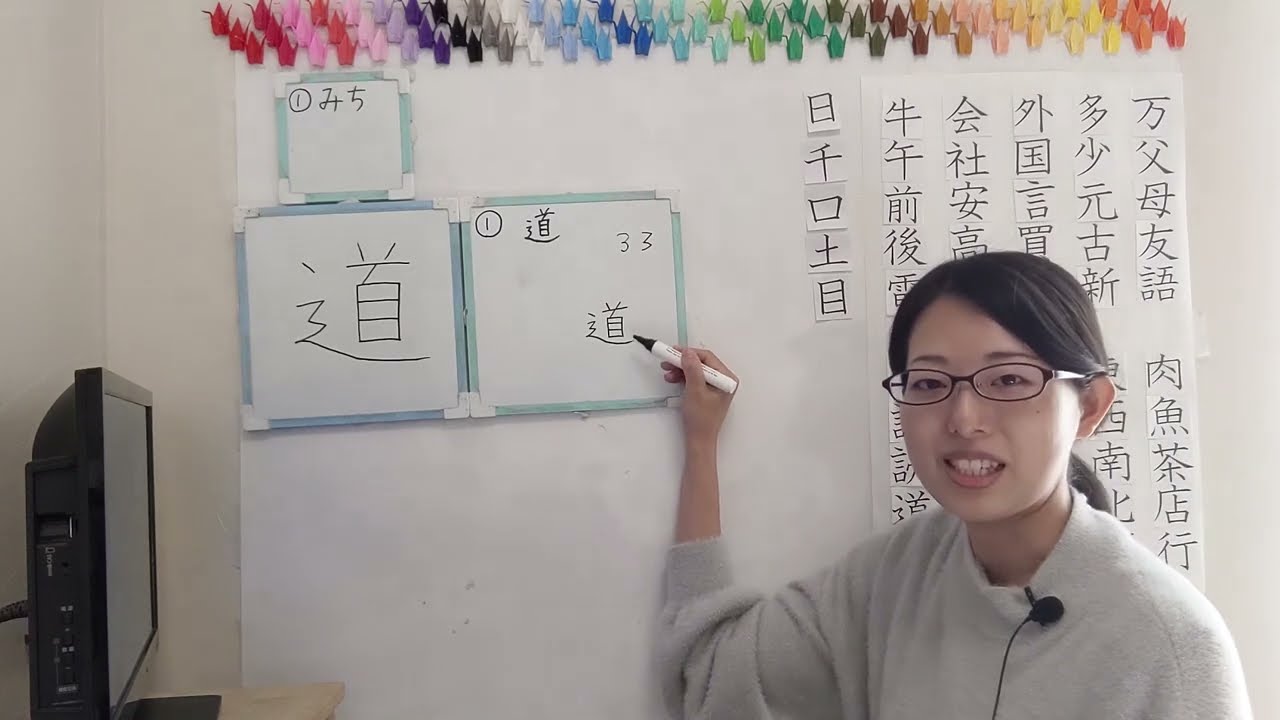 ①みち
道
① 道
33
道
万父母友語
多少元古新
外国言買
会社安高
牛午前後
日千口土目
肉魚茶店行
西南北
道